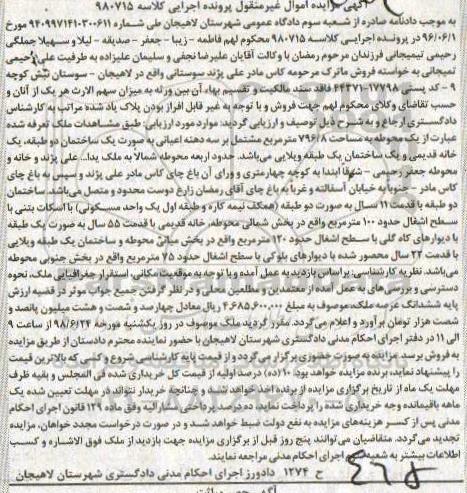 آگهی مزایده اموال غیرمنقول پرونده اجرایی کلاسه ۹۸۰۷۱۵
به موجب دادنامه صادره از شعبه سوم دادگاه عمومی شهرستان لاهیجان طی شماره ۹۴۰۹۹۷۱۴۱۰۳۰۰۶۱۱ مورخ
۹۶/۰۶/۱ در پرونده اجرایی کلاسه ۹۸۰۷۱۵ محکوم لهم فاطمه - زیبا - جعفر - صدیقه - لیلا و سهیلا جملگی
رحیمی تیمیجانی فرزندان مرحوم رمضان با وکالت آقایان علیرضا نجفی و سلیمان علیزاده به طرفیت علی رحیمی
تمیجانی به خواسته فروش ماترک مرحومه کاس مادر علی پژند سوستانی واقع در لاهیجان - سوستان نبش کوچه
۹ - کد پستی ۱۷۷۹۸-۴۴۳۷۱ فاقد سند مالکیت و تقسیم بهاء آن بین ورثه به میزان سهم الارث هر یک از آنان و
حسب تقاضای وکلای محکوم لهم جهت فروش و با توجه به غیر قابل افراز بودن پلاک یاد شده مراتب به کارشناس
دادگستری ارجاع و به شرح ذیل توصیف و ارزیابی گردید: موارد مورد ارزیابی: طبق مشاهدات ملک تعرفه شده
عبارت از یک محوطه به مساحت ۷۹۶/۸ مترمربع مشتمل بر سه دهنه اعیانی به صورت یک ساختمان دو طبقه، یک
خانه قدیمی و یک ساختمان یک طبقه ویلایی می‌باشد. حدود اربعه محوطه شمالا به ملک یدا... علی پژند و خانه و
محوطه جعفر رحیمی - شرقا ابتدا به کوچه چهارمتری و ورای آن باغ چای کاس مادر علی پژند و سپس به باغ چای
کاس مادر - جنوبا به خیابان آسفالته و غربا به باغ چای آقای رمضان زارع دوست محدود و متصل می‌باشد. ساختمان
دو طبقه با قدمت ۱۱ سال به صورت دو طبقه (همکف نیمه کاره و طبقه اول یک واحد مسکونی) با اسکلت بتنی با
سطح اشغال حدود ۱۰۰ مترمربع واقع در بخش شمالی محوطه، خانه قدیمی با قدمت ۵۵ سال به صورت یک طبقه
با دیوارهای کاه گلی با سطح اشغال حدود ۱۲۰ مترمربع واقع در بخش میانی محوطه و ساختمان یک طبقه ویلایی
با قدمت ۲۲ سال محصور شده با دیوارهای بلوکی با سطح اشغال حدود ۷۵ مترمربع واقع در بخش جنوبی محوطه
می‌باشد. نظریه کارشناسی: براساس بازدید به عمل آمده و با توجه به موقعیت مکانی، استقرار جغرافیایی ملک، نحوه
دسترسی و بررسی های به عمل آمده از معتمدین و مطلعین محلی و در نظر گرفتن جمیع جوانب موثر در قضیه ارزش
پایه ششدانگ عرصه ملک موصوف به مبلغ ۴،۶۸۵،۶۰۰،۰۰۰ ریال معادل چهارصد و شصت و هشت میلیون پانصد و
شصت هزار تومان برآورد و اعلام می‌گردد. مقرر گردید ملک موصوف در روز یکشنبه مورخه ۹۸/۶/۲۴ از ساعت ۹
الی ۱۱ در دفتر اجرای احکام مدنی دادگستری شهرستان لاهیجان با حضور نماینده محترم دادستان از طریق مزایده
به فروش برسد. مزایده به صورت حضوری برگزار می‌گردد و از قیمت پایه کارشناسی شروع و کسی که بالاترین قیمت
را پیشنهاد نماید، برنده مزایده خواهد بود. ۱۰ (ده) درصد اولیه از قیمت کل خریداری شده فی المجلس و بقیه ظرف
مهلت یک ماه از تاریخ برگزاری مزایده از برنده اخذ خواهد شد و چنانچه خریدار نتواند در مهلت تعیین شده یک
ماهه باقیمانده وجه خریداری شده را پرداخت نماید، ده درصد پرداختی مشارالیه وفق ماده ۱۲۹ قانون اجرای احکام
مدنی پس از کسر هزینه‌های مزایده به نفع دولت ضبط خواهد شد و در صورت درخواست مجدد خواهان، مزایده
تجدید می‌گردد. متقاضیان می‌توانند پنج روز قبل از برگزاری مزایده جهت بازدید از ملک فوق الاشاره و کسب
اطلاعات بیشتر به شعبه اجرای احکام مدنی مراجعه نمایند.
ح ۱۲۷۴ دادورز اجرای احکام مدنی دادگستری شهرستان لاهیجان